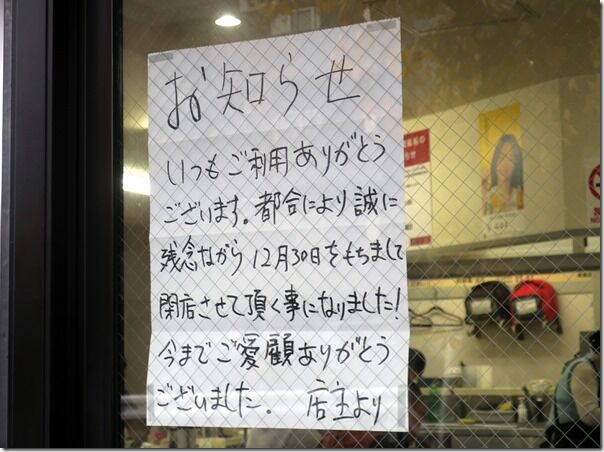 お知らせ
いつもご利用ありがとう
ございます。都合により誠に
残念ながら12月30日をもちまして
閉店させて頂く事になりました!
今までご愛顧ありがとう
ございました。 店主より